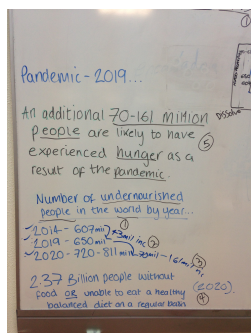 Pandemic - 2019...
An additional 70-161 million
people are likely to have
experienced hunger as a
result of the pandemic.
⑤
Dissolve
Number of undernourished
people in the world by year...
①
2014 - 607mil
+43mil inc ②
2019 - 650mil
2020 - 720-811mil
- 161mil
③
2.37 Billion people without (2020).
food OR unable to eat a healthy
balanced diet on a regular basis
④